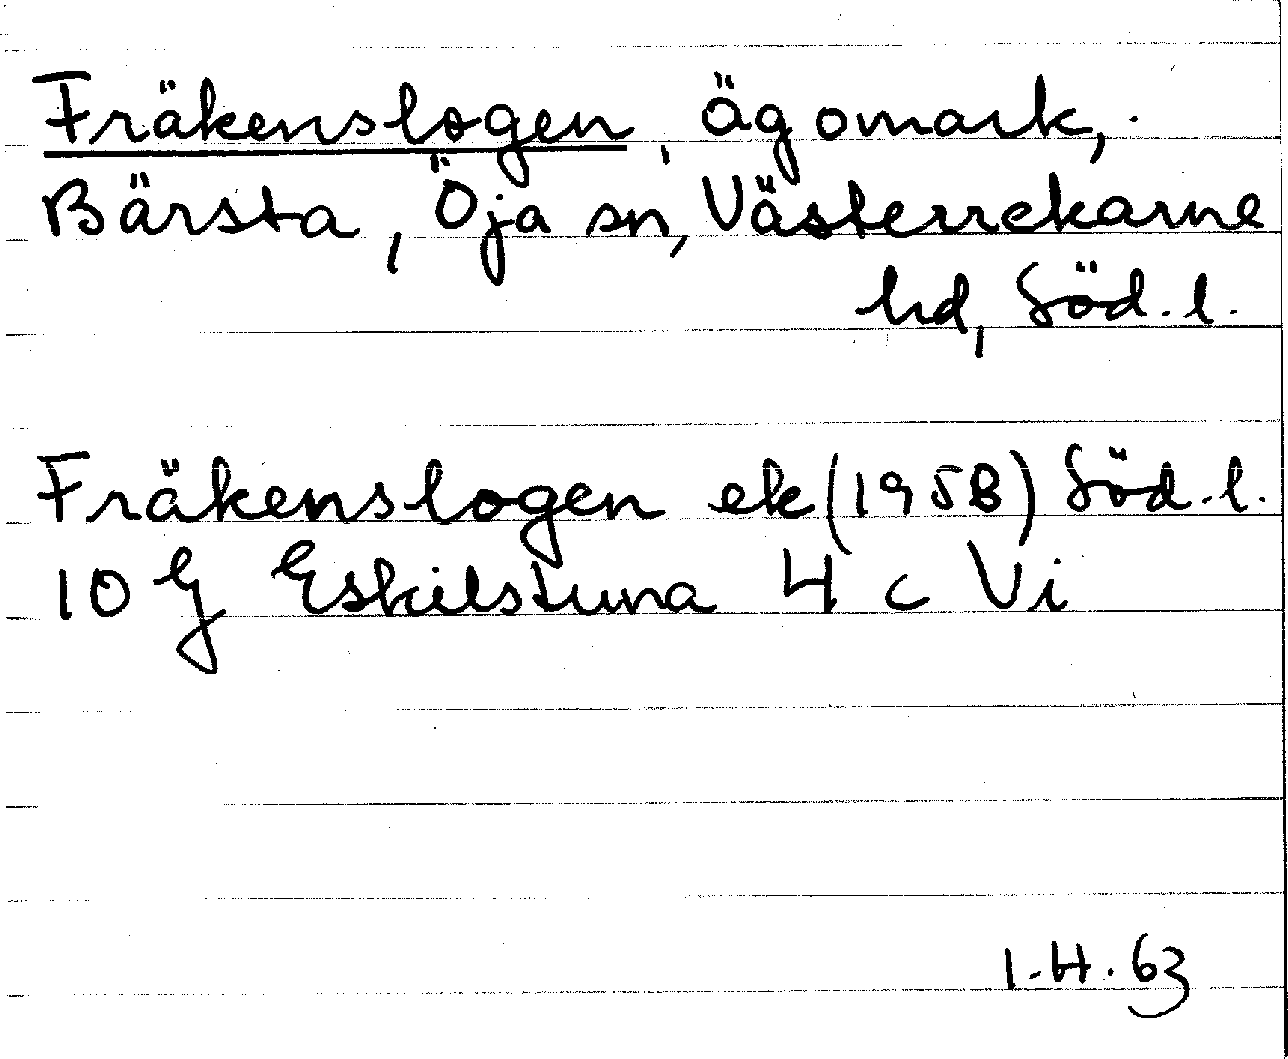 Fräkenslogen, ägomark,
Bärsta, Öja sn, Västerrekarne
hd, Söd. l.
Fräkenslogen ek (1958) Söd. l.
10 G Eskilstuna 4 c Vi
1.4.63